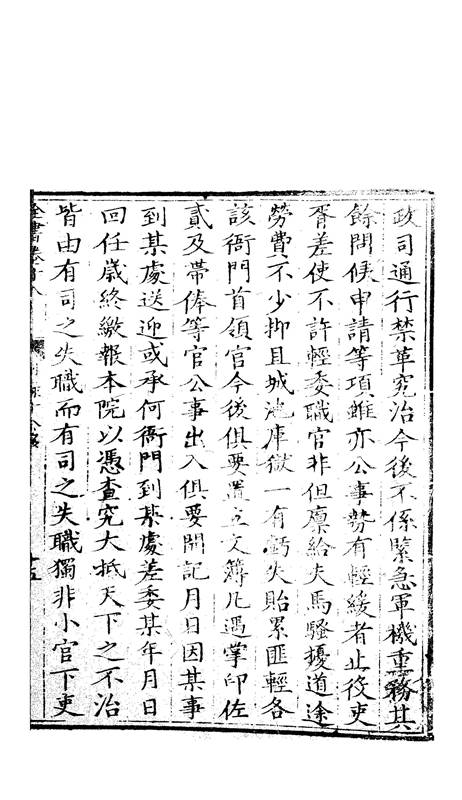 政司通行禁革究治今後不係緊急軍機重務其
餘問候申請等項雖亦公事勢有輕緩者止役吏
胥差使不許輕委職官非但廩給夫馬騷擾道途
勞費不少抑且城池庫獄一有虧失貽累匪輕各
該衙門首領官今後俱要置立文簿凡遇掌印佐
貳及帶俸等官公事出入俱要開記月日因某事
到某處送迎或承何衙門到某處差委某年月日
回任歲終繳報本院以憑查究大抵天下之不治
皆由有司之失職而有司之失職獨非小官下吏
全書卷十八
十五